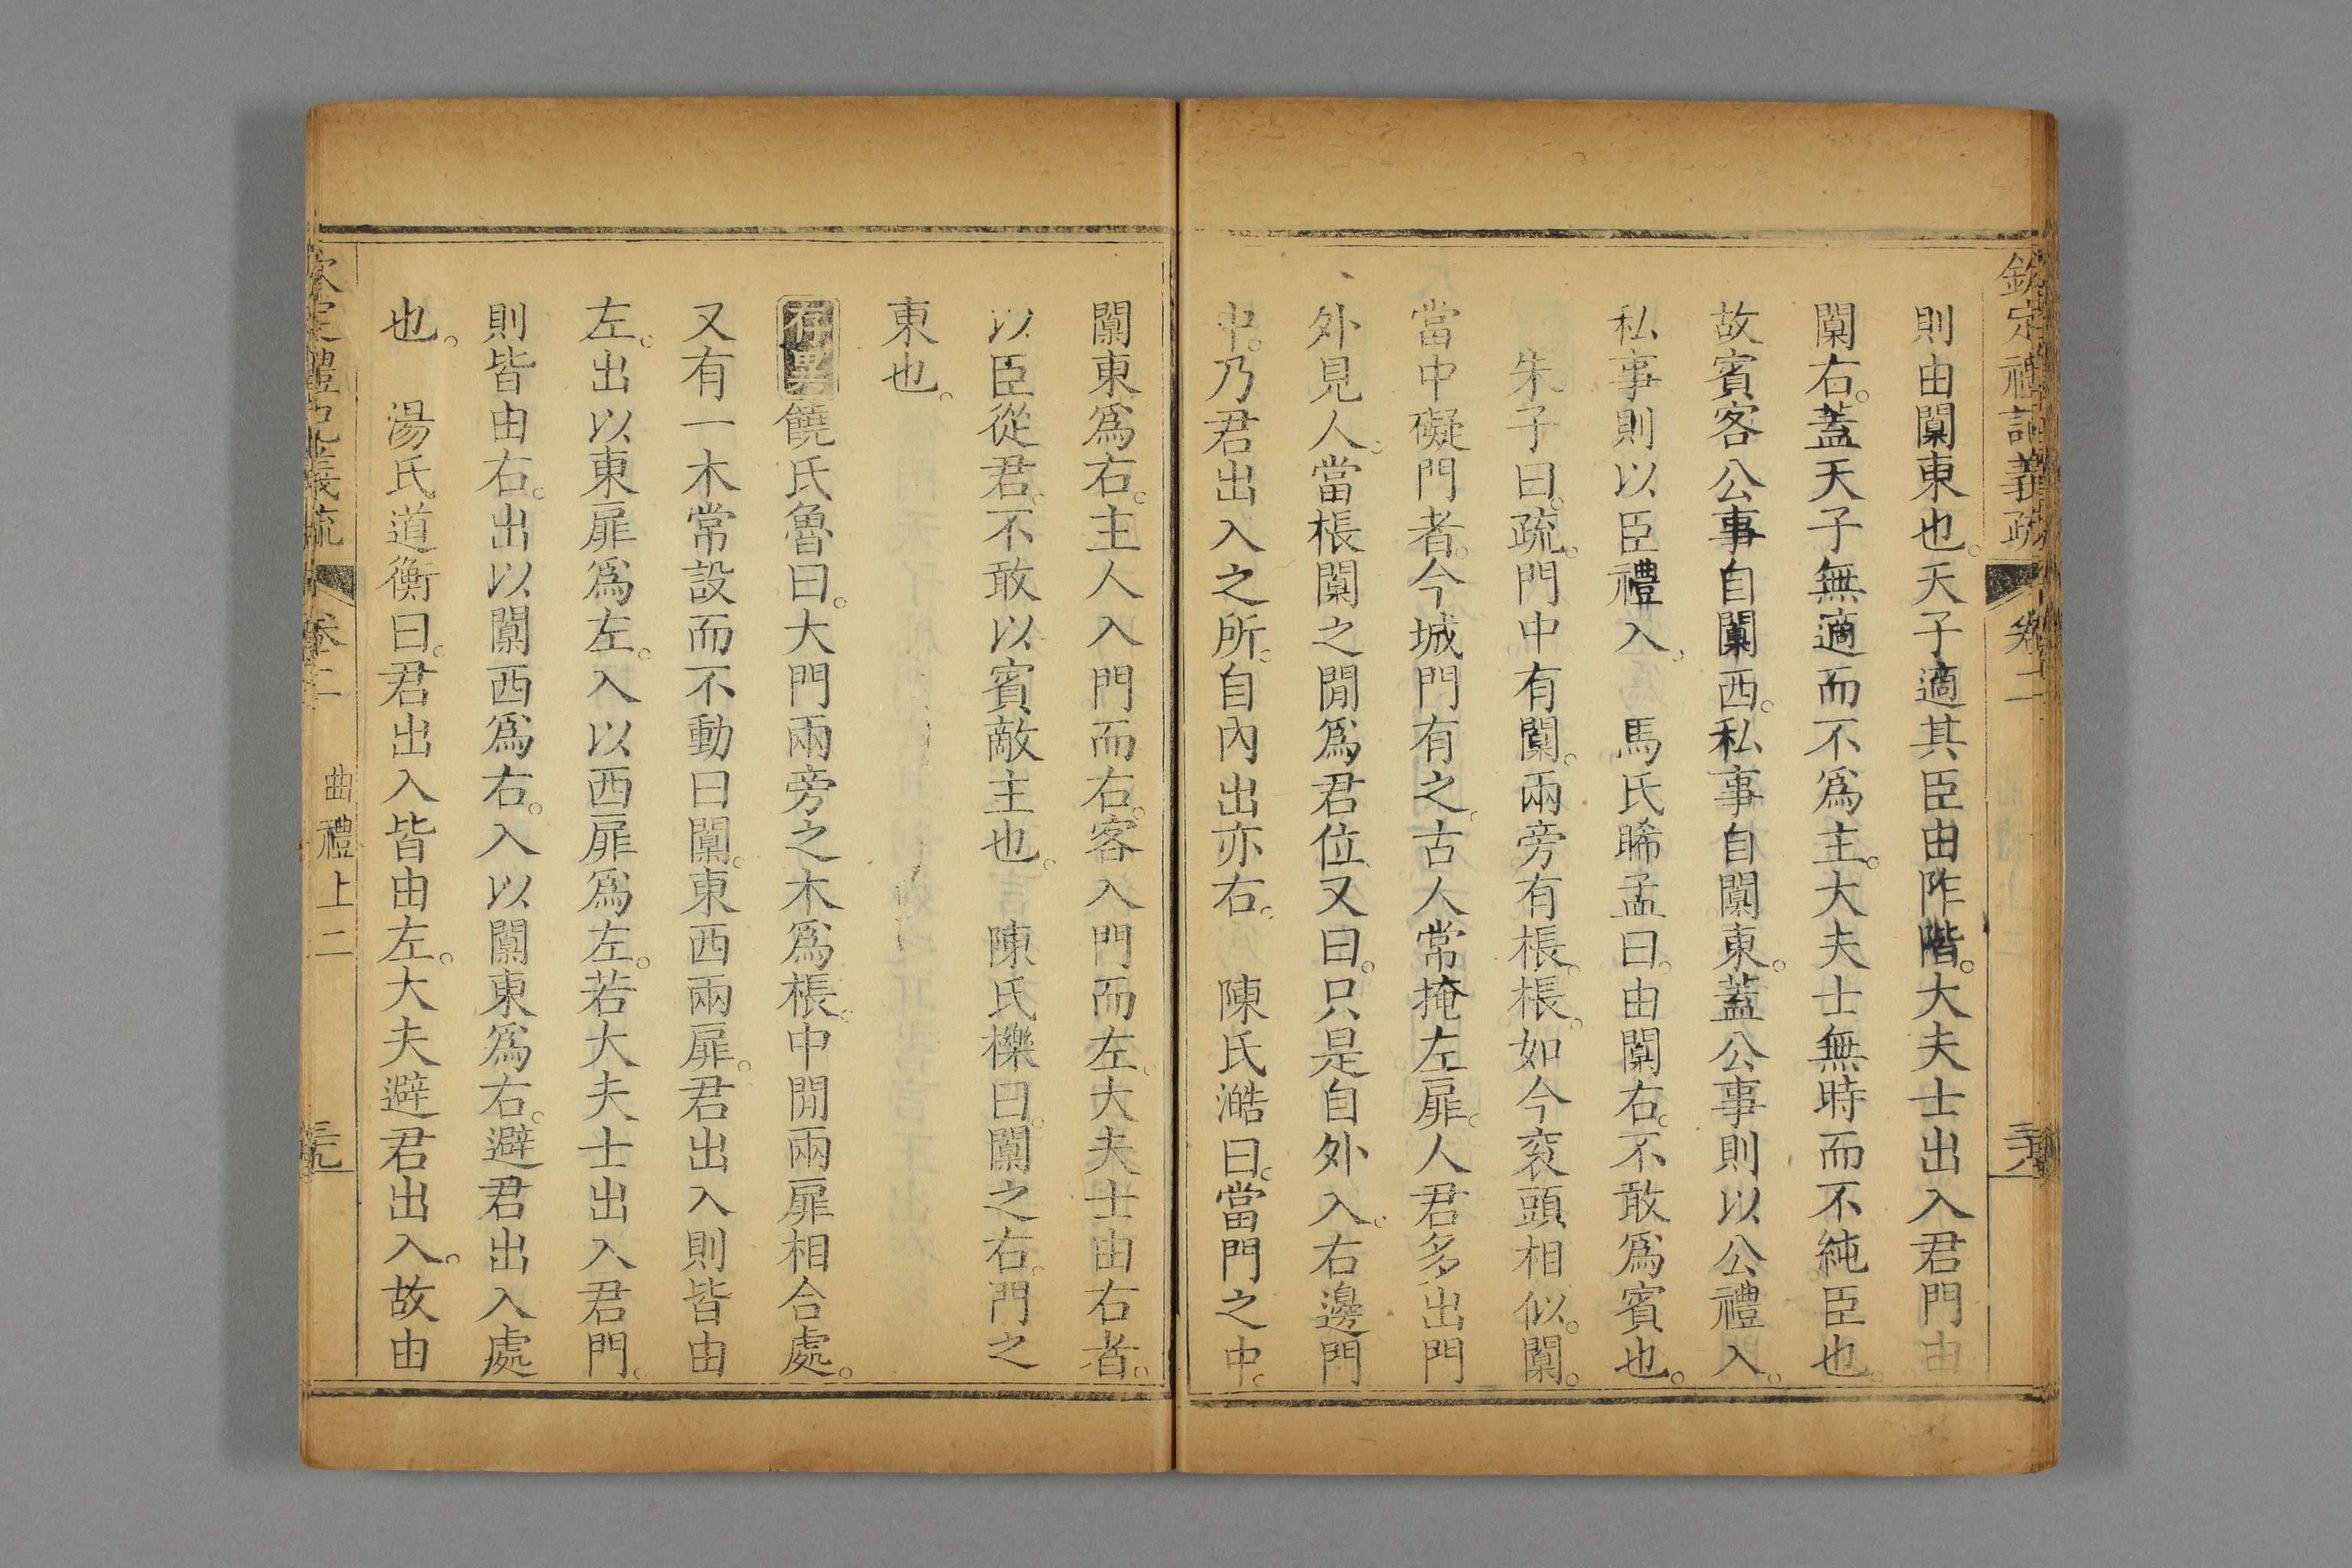 欽定禮記義疏 卷二 三十八
則由闑東也。天子適其臣由阼階。大夫士出入君門由
闑右。蓋天子無適而不爲主。大夫士無時而不純臣也。
故賓客公事自闑西。私事自闑東。蓋公事則以公禮入。
私事則以臣禮入。 馬氏晞孟曰。由闑右。不敢爲賓也。
朱子曰。疏。門中有闑。兩旁有棖。棖。如今袞頭相似。闑。
當中礙門者。今城門有之。古人常掩左扉。人君多出門
外見人。當棖闑之閒爲君位。又曰。只是自外入。右邊門
中。乃君出入之所。自內出亦右。 陳氏澔曰。當門之中。
闑東爲右。主人入門而右。客入門而左。大夫士由右者。
以臣從君。不敢以賓敵主也。 陳氏櫟曰。闑之右。門之
東也。
存異饒氏魯曰。大門兩旁之木爲棖。中閒兩扉相合處。
又有一木常設而不動曰闑。東西兩扉。君出入則皆由
左。出以東扉爲左。入以西扉爲左。若大夫士出入君門。
則皆由右。出以闑西爲右。入以闑東爲右。避君出入處
也。 湯氏道衡曰。君出入皆由左。大夫避君出入。故由
欽定禮記義疏 卷二 曲禮上二 三十九